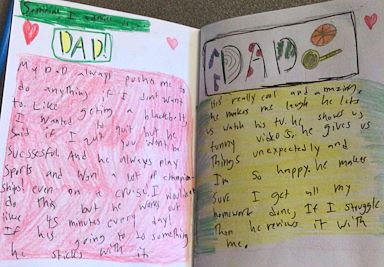 Someone I admire is
DAD!
My DaD always push me to
do anything if I dont want
to. Like getting a blackbelt
I wanted to quit but he
said if I quit you wont be
successful. And he always play
sports and won a lot of champion
ships! even on a cruise. I wouldn't
do this but he works out
like 45 minutes every day!
If his going to do something
he sticks with it
DAD
His really cool and amazing.
he makes me laugh he lets
us watch his tv. he shows us
funny videos, he gives us
things unexpectedly and
Im so happy. he makes
Sure I get all my
homework done, If I struggle
Than he reviews it with
me.